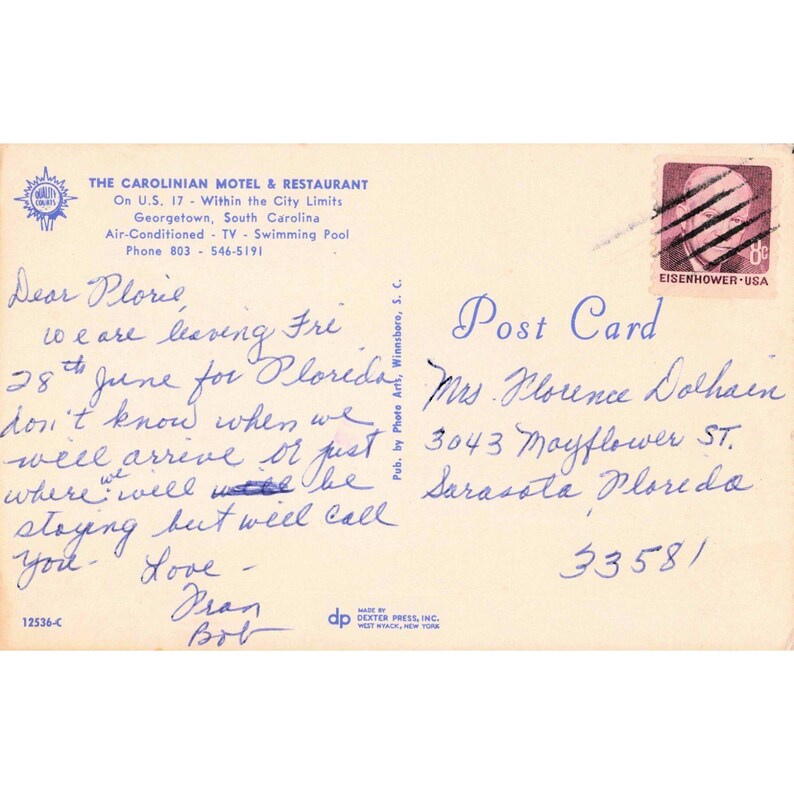 QUALITY COURTS
THE CAROLINIAN MOTEL & RESTAURANT
On U.S. 17 - Within the City Limits
Georgetown, South Carolina
Air-Conditioned - TV - Swimming Pool
Phone 803 - 546-5191
Dear Florie,
we are leaving Fri
28th June for Florida
don't know when we
will arrive or just
where we will be
staying but will call
You - Love -
Fran
Bob
12536-C
Pub. by Photo Arts, Winnsboro, S. C.
dp MADE BY
DEXTER PRESS, INC.
WEST NYACK, NEW YORK
8c
EISENHOWER·USA
Post Card
Mrs. Florence Dolhain
3043 Mayflower ST.
Sarasota, Florida
33581